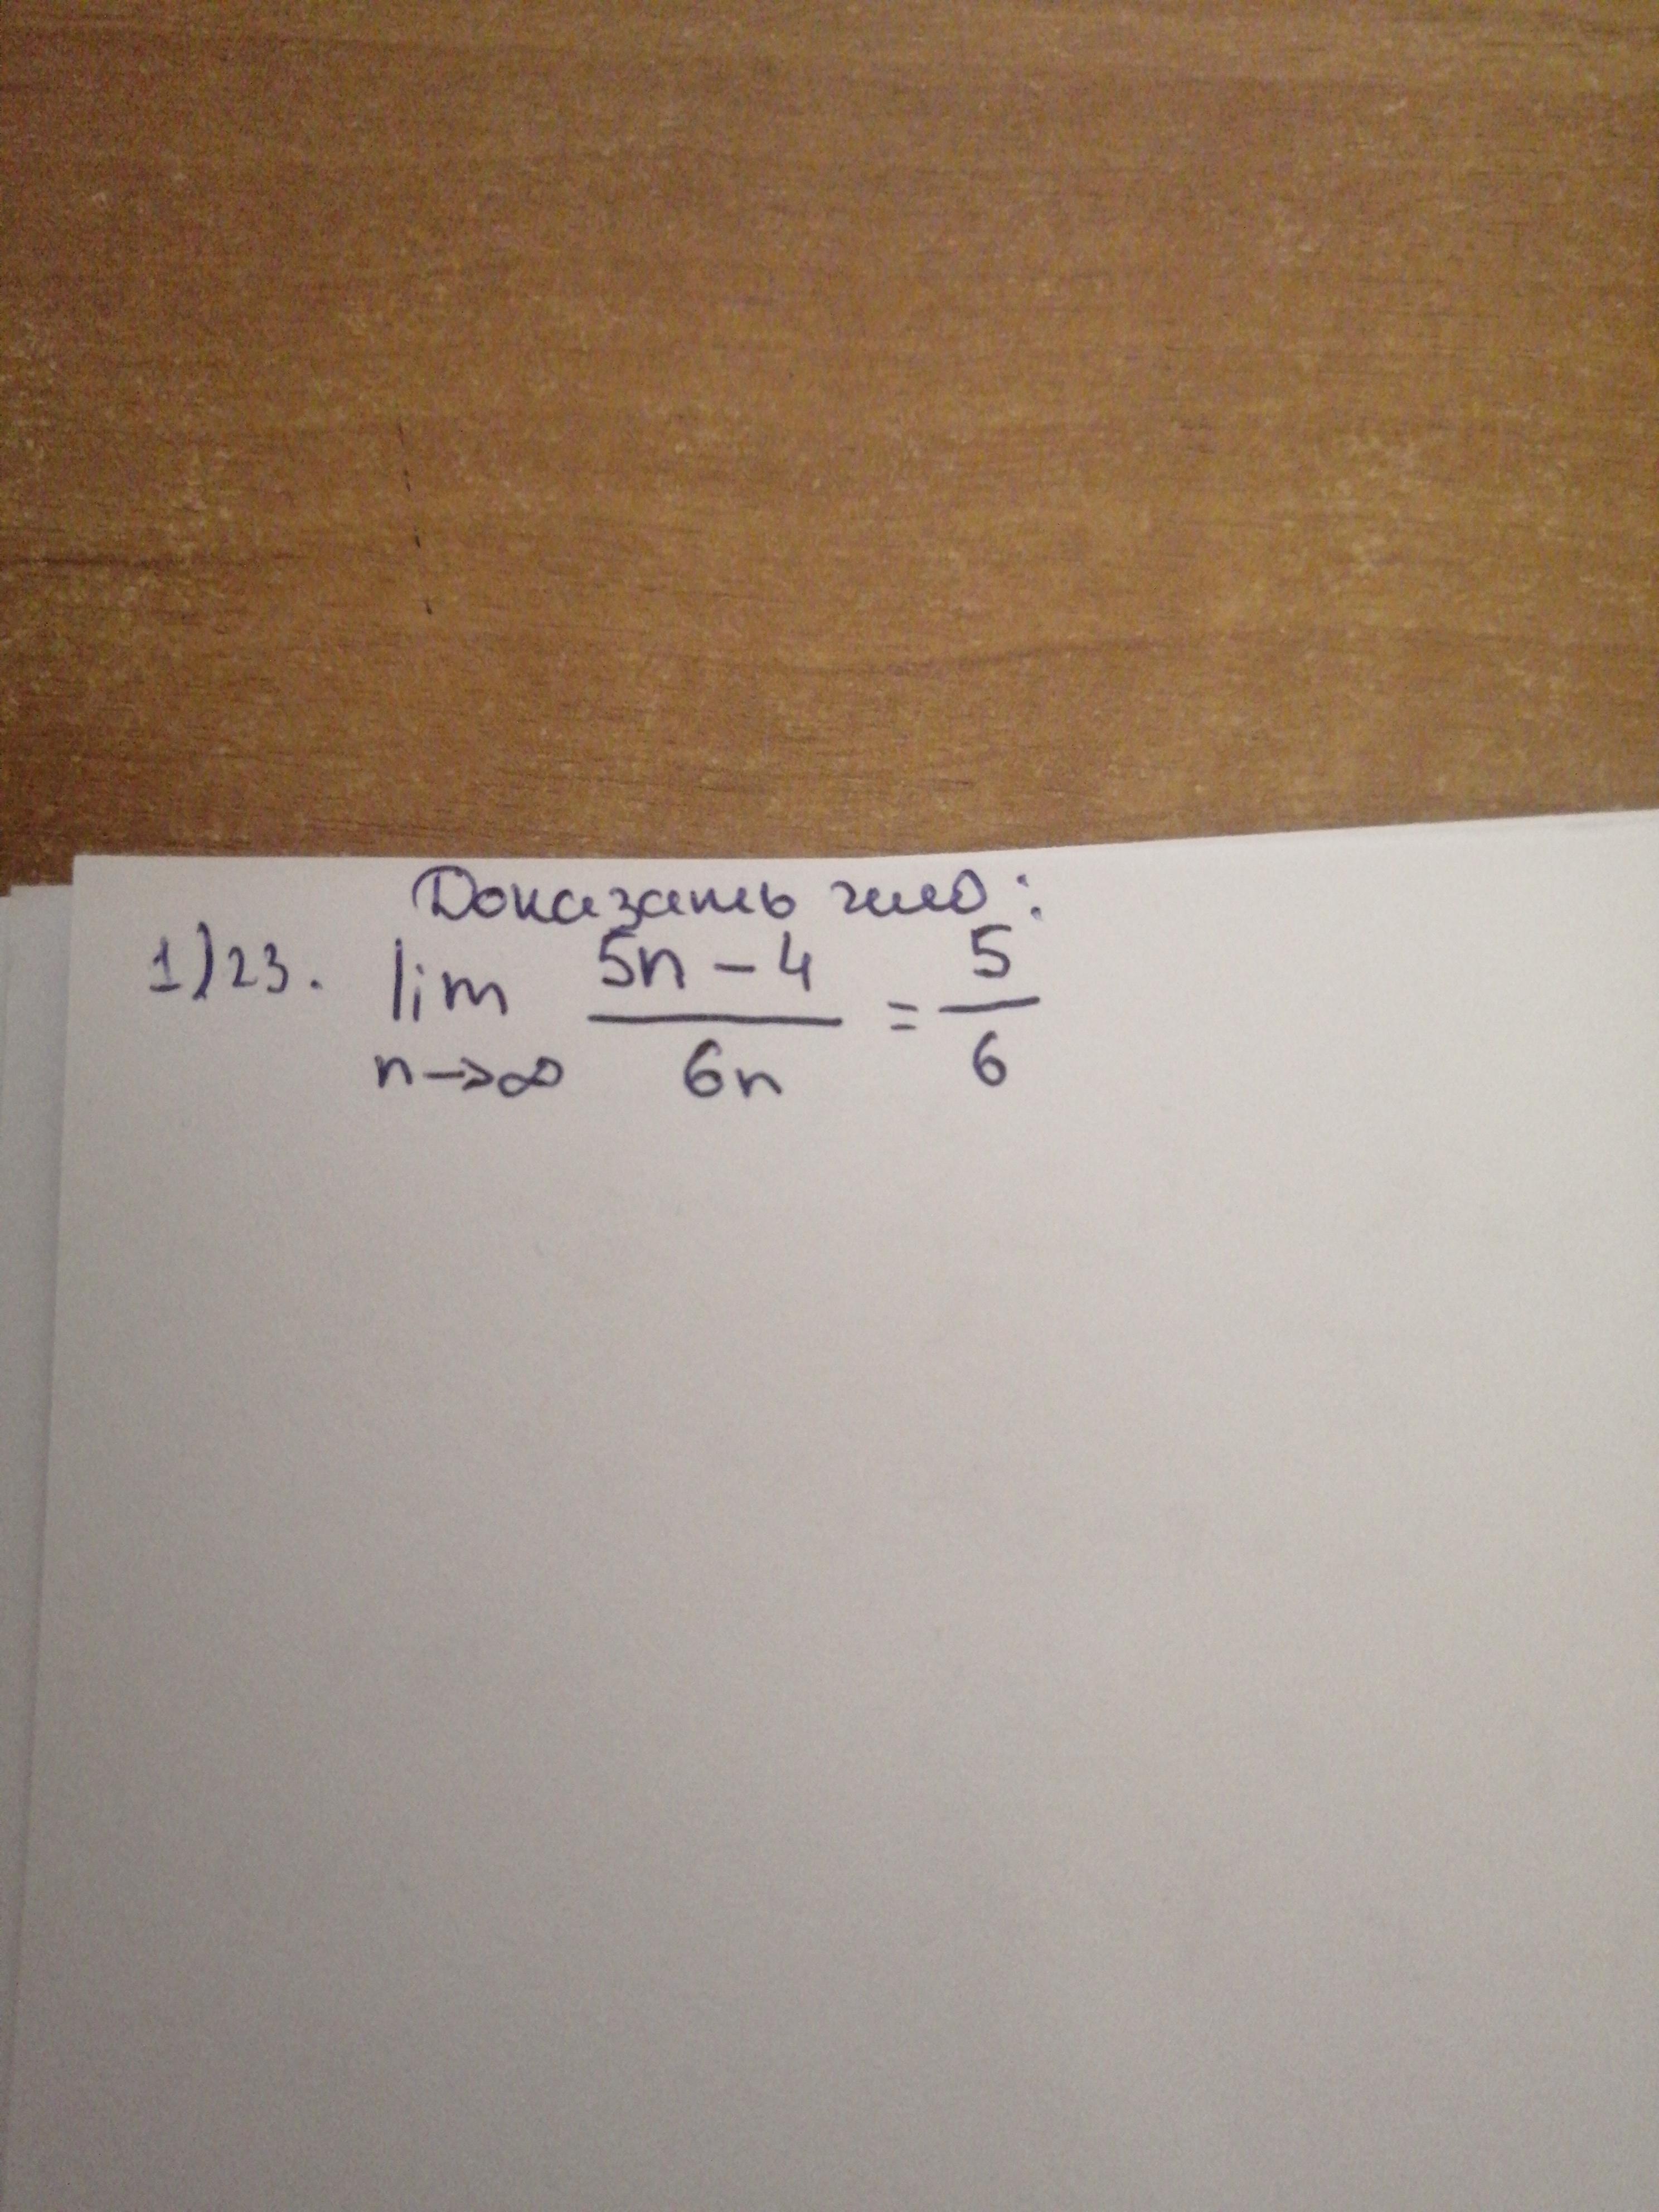 Доказать число:
1)23. lim 5n - 4 / 6n = 5 / 6
n→∞